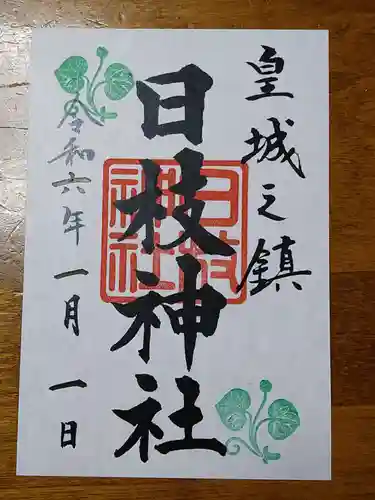 皇城之鎮
日枝神社
令和六年一月一日
日枝神社